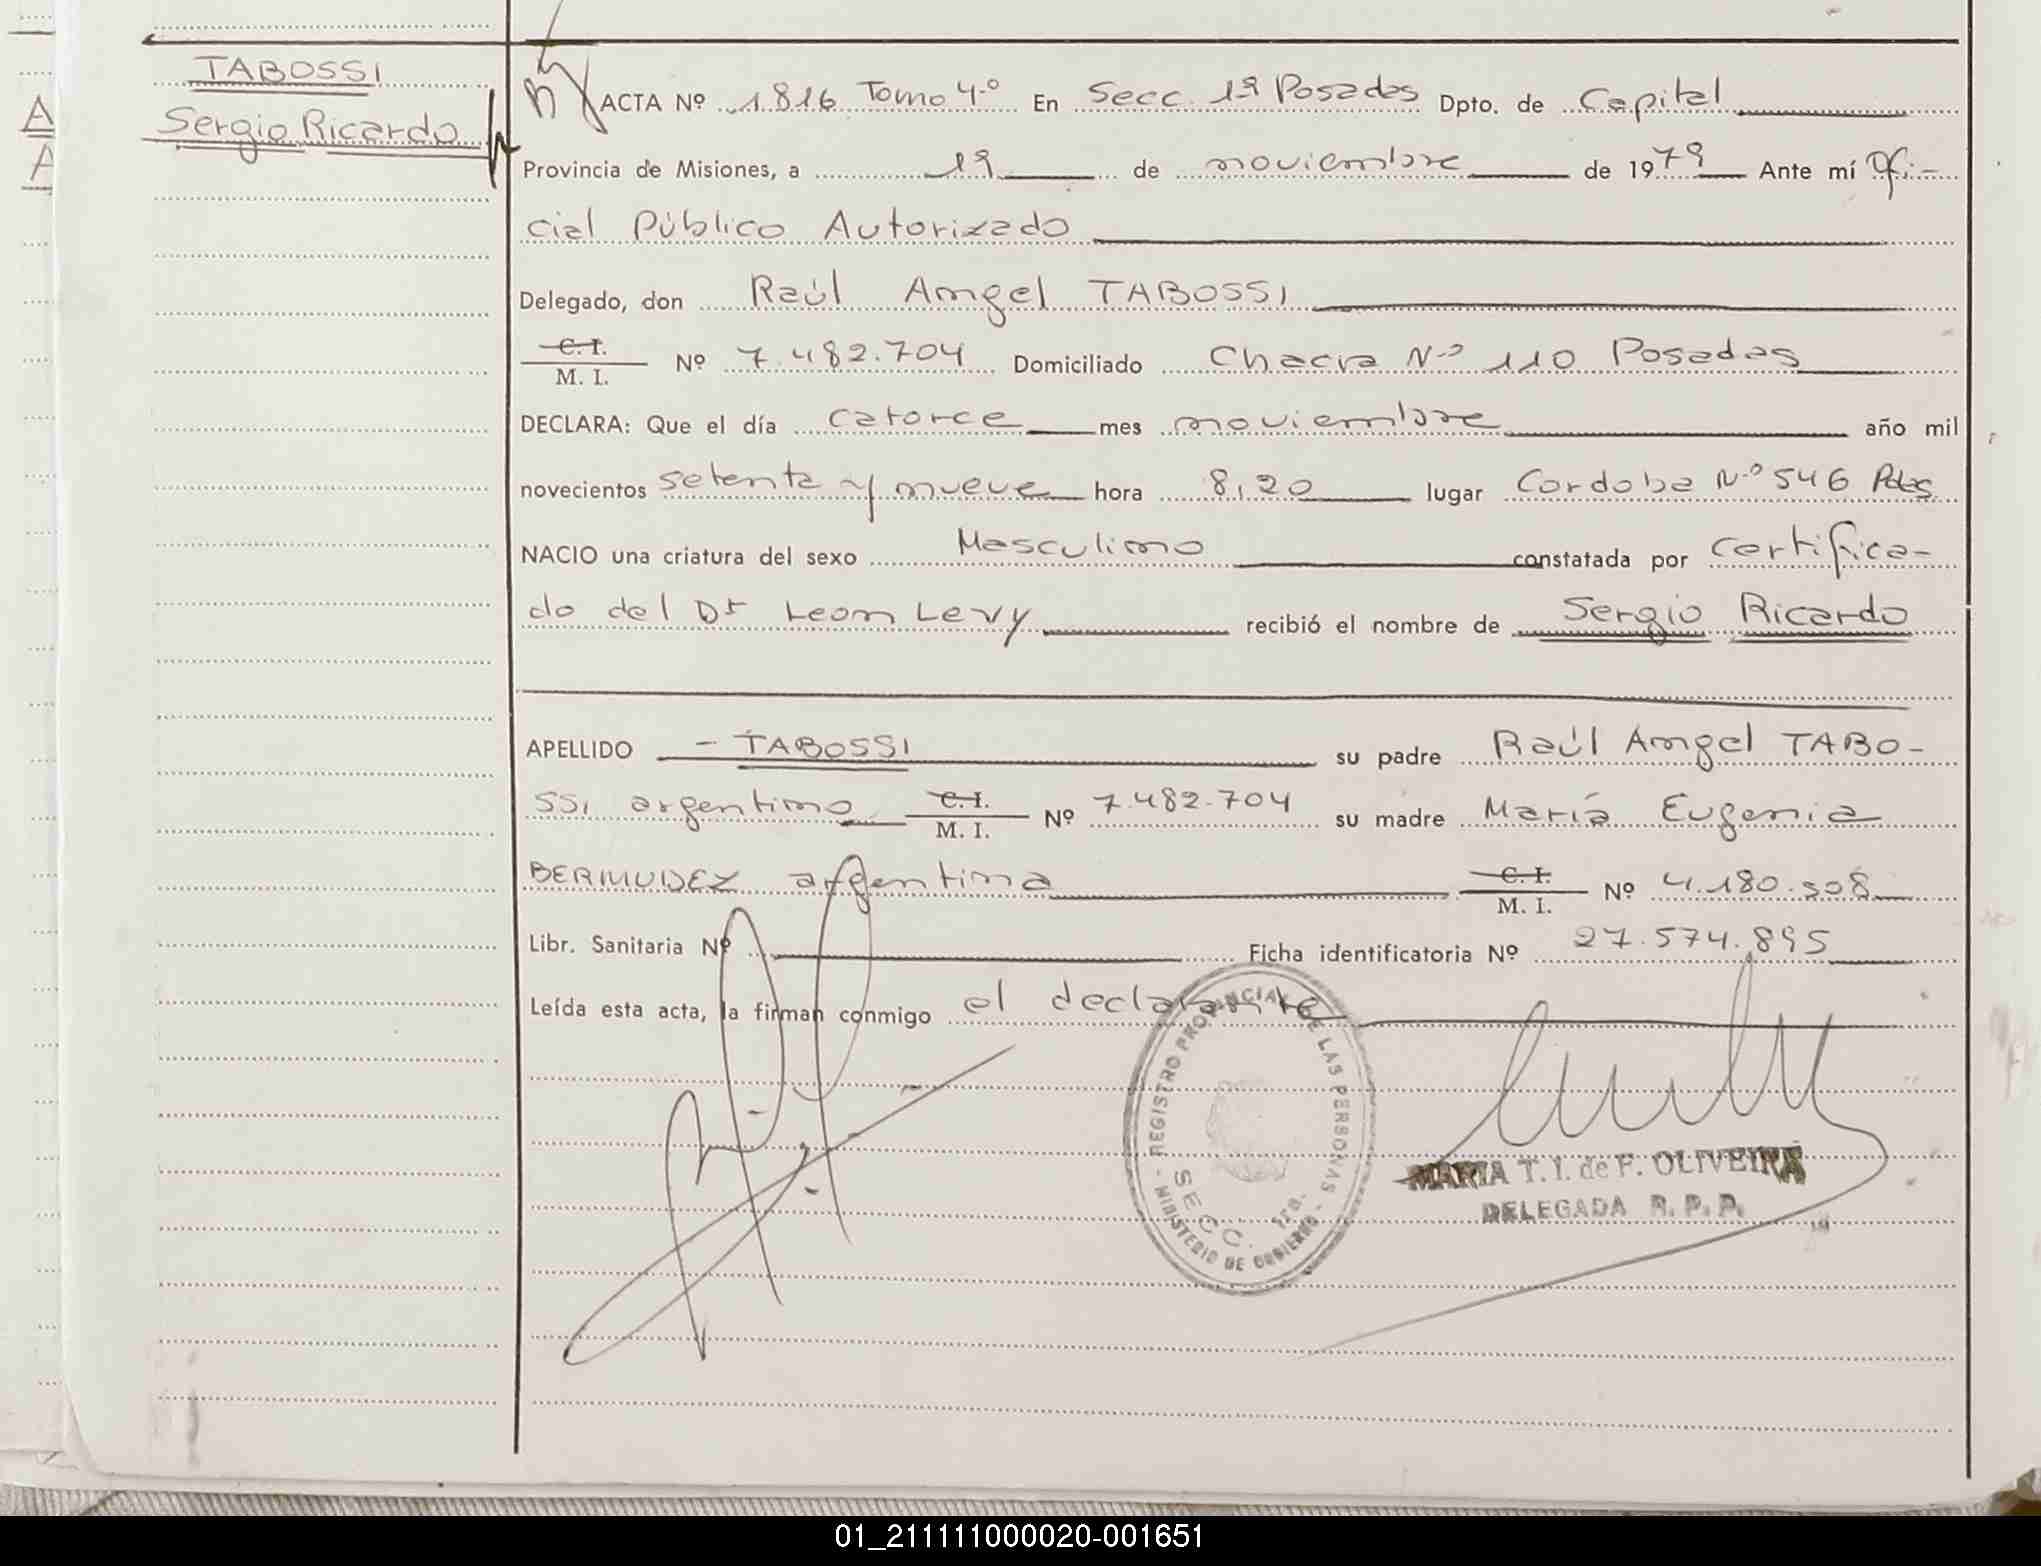 TABOSSI
Sergio Ricardo
ACTA Nº 1.816 Tomo 4.º En Secc. 1ª Posadas Dpto. de Capital
Provincia de Misiones, a 19 de noviembre de 1979 Ante mí Ofi-
cial Público Autorizado
Delegado, don Raúl Angel TABOSSI
C. I.
M. I. Nº 7.482.704 Domiciliado Chacra Nº 110 Posadas
DECLARA: Que el día catorce mes noviembre año mil
novecientos setenta y nueve hora 8,20 lugar Cordoba Nº 546 Pdas
NACIO una criatura del sexo Masculino constatada por certifica-
do del Dr Leon Levy recibió el nombre de Sergio Ricardo
APELLIDO - TABOSSI su padre Raúl Angel TABO-
SSI argentino C. I. M. I. Nº 7.482.704 su madre María Eugenia
BERMUDEZ argentina C. I. M. I. Nº 4.180.508
Libr. Sanitaria Nº Ficha identificatoria Nº 27.574.895
Leída esta acta, la firman conmigo el declarante
REGISTRO PROVINCIAL DE LAS PERSONAS
SECC. 1ra.
MINISTERIO DE GOBIERNO
MARIA T. I. de F. OLIVEIRA
DELEGADA R. P. P.
01_211111000020-001651